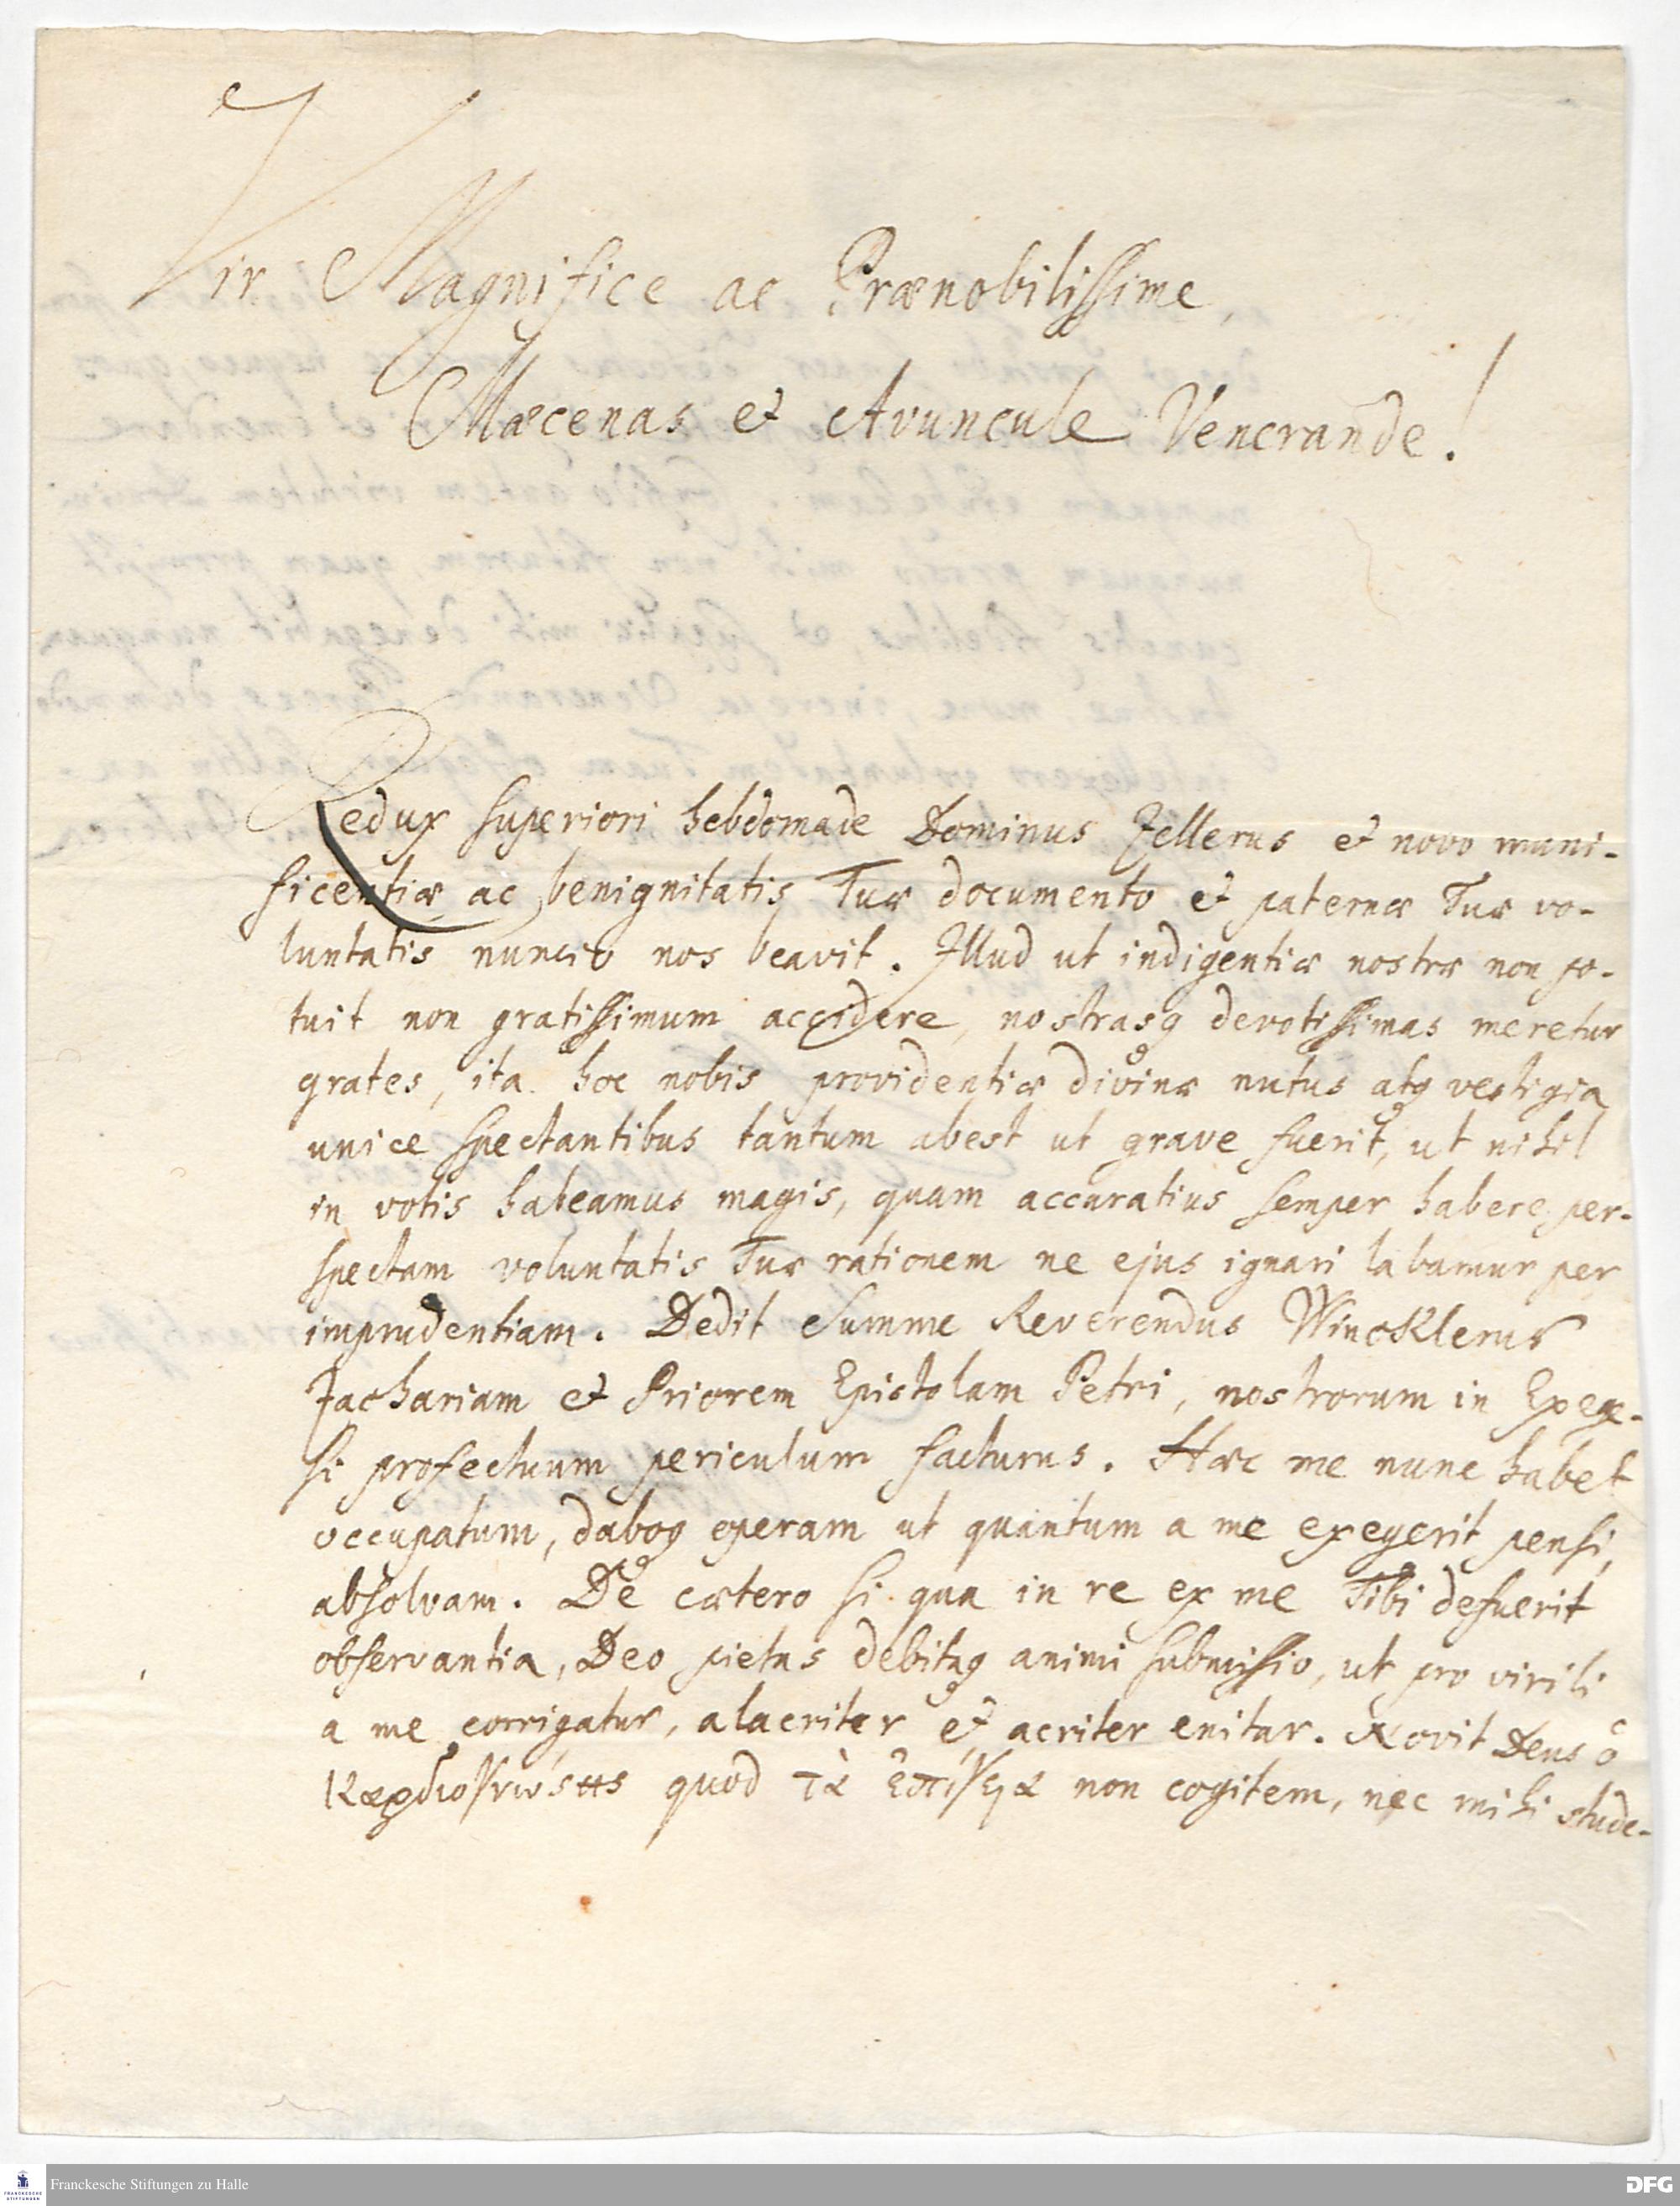 Vir Magnifice ac Prænobilissime,
Mæcenas et Avuncule Venerande!
Redux superiori hebdomade Dominus Zellerus et novo muni-
ficentiæ ac benignitatis Tuæ documento et paternæ Tuæ vo-
luntatis nuncio nos beavit. Illud ut indigentiæ nostræ non po-
tuit non gratissimum accidere, nostrasq devotissimas meretur
grates, ita hoc nobis providentiæ divinæ nutus atq vestigia
unice spectantibus tantum abest ut grave fuerit, ut nihil
in votis habeamus magis, quam accuratius semper habere per-
spectam voluntatis Tuæ rationem ne ejus ignari labamur per
imprudentiam. Dedit Summe Reverendus Wincklerus
Zachariam et Priorem Epistolam Petri, nostrorum in Exege-
si profectuum periculum facturus. Hæc me nunc habet
occupatum, daboq operam ut quantum a me exegerit pensi,
absolvam. De cætero si qua in re ex me Tibi defuerit
observantia, Deo pietas debitaq animi submissio, ut pro virili
a me corrigatur, alacriter et acriter enitar. Novit Deus ὁ
καρδιογνώστης quod τὰ ἐπίγεια non cogitem, nec mihi stude-
Franckesche Stiftungen zu Halle
DFG
FRANCKESCHE
STIFTUNGEN